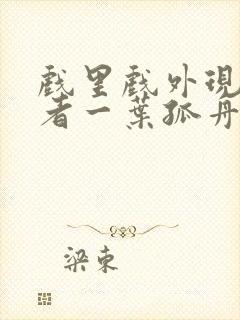 戲里戲外現
者一葉孤舟
梁東